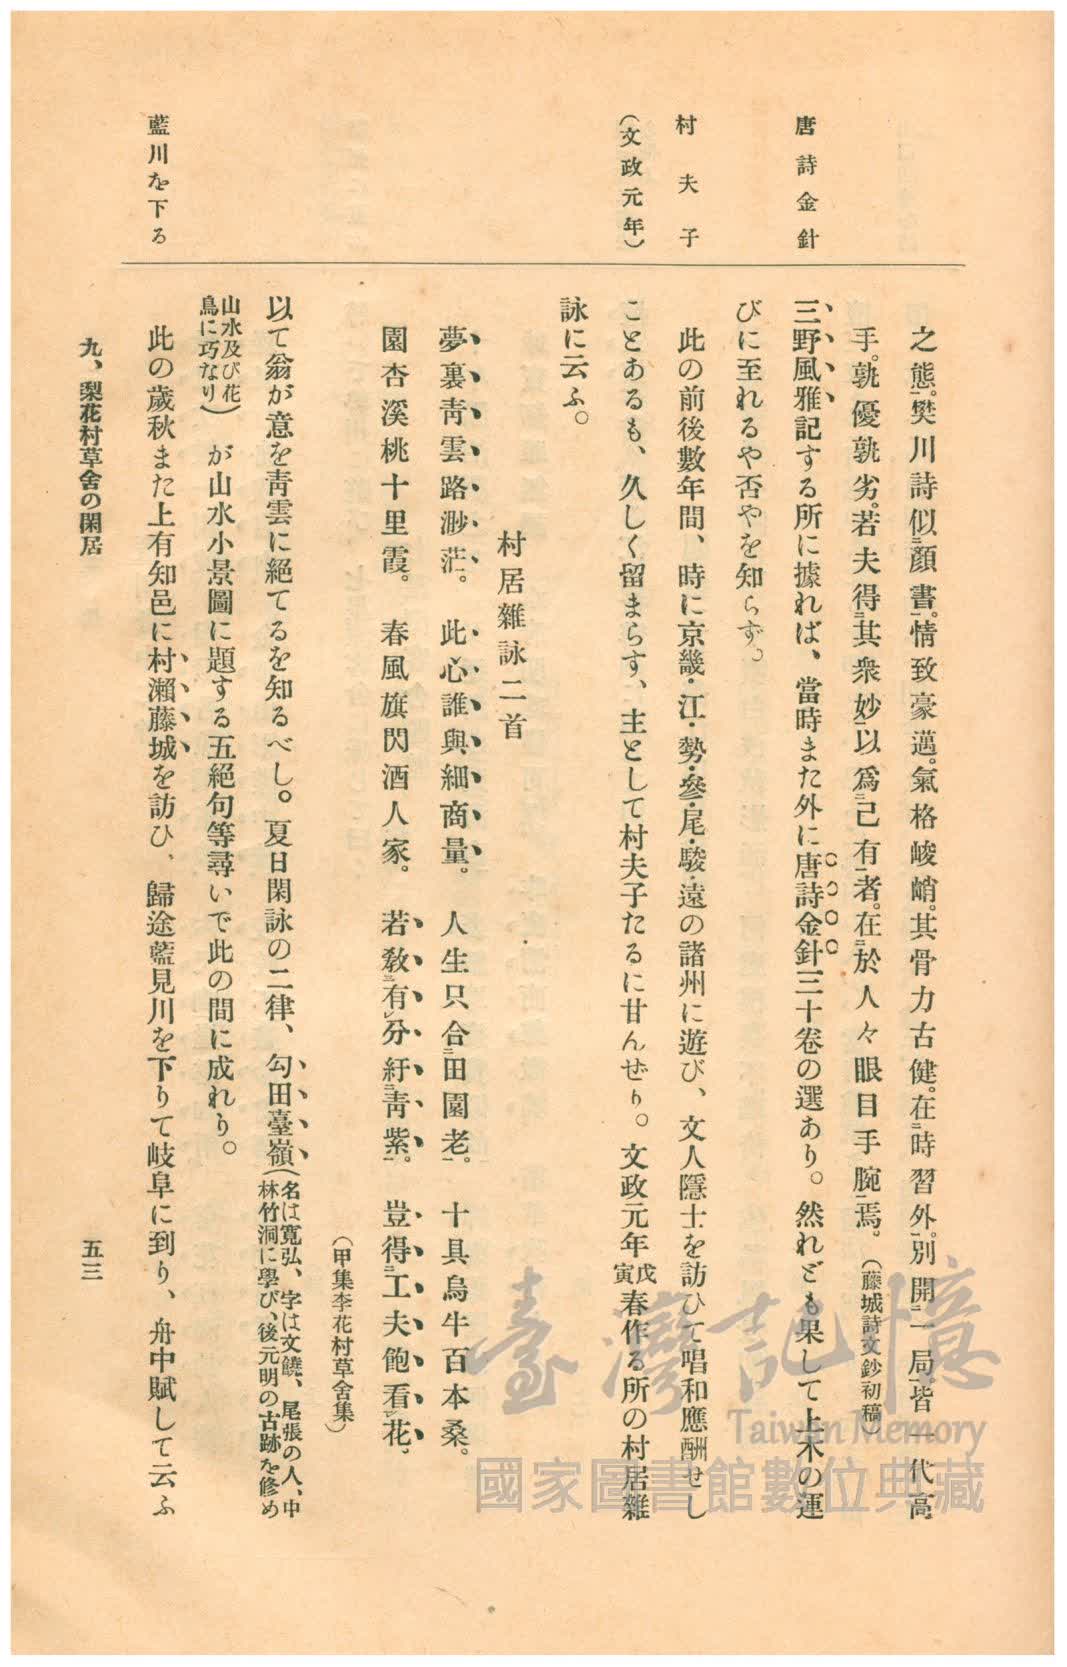 唐詩金針
村夫子
(文政元年)
藍川を下る
之態。樊川詩似顏書。情致豪邁。氣格峻峭。其骨力古健。在時習外。別開一局。皆一代高
手。孰優孰劣。若夫得其衆妙。以爲己有者。在於人々眼目手腕焉。(藤城詩文鈔初稿)
三野風雅記する所に據れば、當時また外に唐詩金針三十卷の選あり。然れども果して上木の運
びに至れるや否やを知らず。
此の前後數年間、時に京畿・江・勢・參・尾・駿・遠の諸州に遊び、文人隱士を訪ひて唱和應酬せし
ことあるも、久しく留まらす、主として村夫子たるに甘んぜり。文政元年戊寅春作る所の村居雜
詠に云ふ。
村居雜詠二首
夢裏靑雲路渺茫。此心誰與細商量。人生只合二田園老一。十具烏牛百本桑。
園杏溪桃十里霞。春風旗閃酒人家。若敎三有レ分紆二靑紫一。豈得三工夫飽看レ花。
(甲集李花村草舍集)
以て翁が意を靑雲に絕てるを知るべし。夏日閑詠の二律、勾田臺嶺(名は寬弘、字は文饒、尾張の人、中
林竹洞に學び、後元明の古跡を修め
山水及び花
鳥に巧なり)が山水小景圖に題する五絕句等尋いで此の間に成れり。
此の歲秋また上有知邑に村瀨藤城を訪ひ、歸途藍見川を下りて岐阜に到り、舟中賦して云ふ
九、梨花村草舍の閑居
五三
臺灣記憶
Taiwan Memory
國家圖書館數位典藏